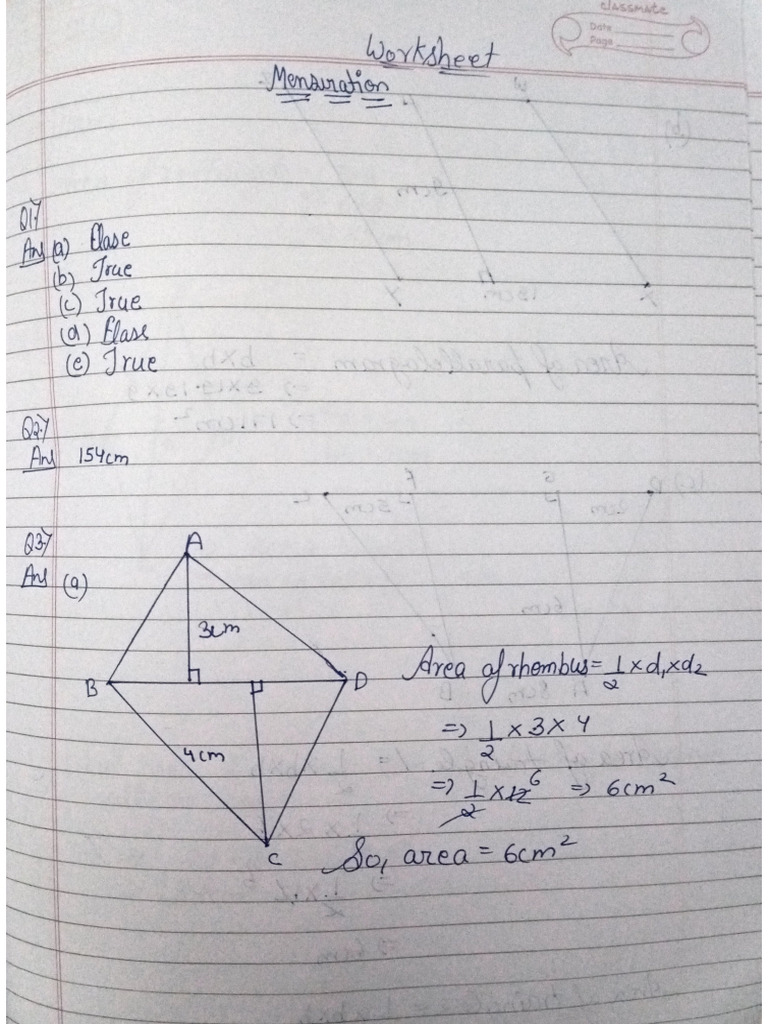 classmate
Date
Page
Worksheet
Mensuration
Q1→
Ans (a) Flase
(b) True
(c) True
(d) Flase
(e) True
Q2→
Ans 154cm
Q3→
Ans (a)
A
3cm
B
D
4cm
C
Area of rhombus = 1/2 × d1 × d2
=> 1/2 × 3 × 4
=> 1/2 × 12 6 => 6cm²
So, area = 6cm²